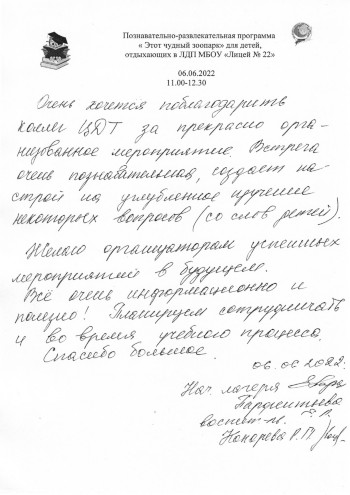 Познавательно-развлекательная программа
« Этот чудный зоопарк» для детей,
отдыхающих в ЛДП МБОУ «Лицей № 22»
06.06.2022
11.00-12.30
Очень хочется поблагодарить
коллег ЦДТ за прекрасно орга-
низованное мероприятие. Встреча
очень познавательная, создает на-
строй на углубленное изучение
некоторых вопросов (со слов детей).
Желаю организаторам успешных
мероприятий в будущем.
Всё очень информационно и
полезно! Планируем сотрудничать
и во время учебного процесса.
Спасибо большое.
06.06.2022.
Нач. лагеря
Парфентьева
воспит-ль
Кокорева Р.П.